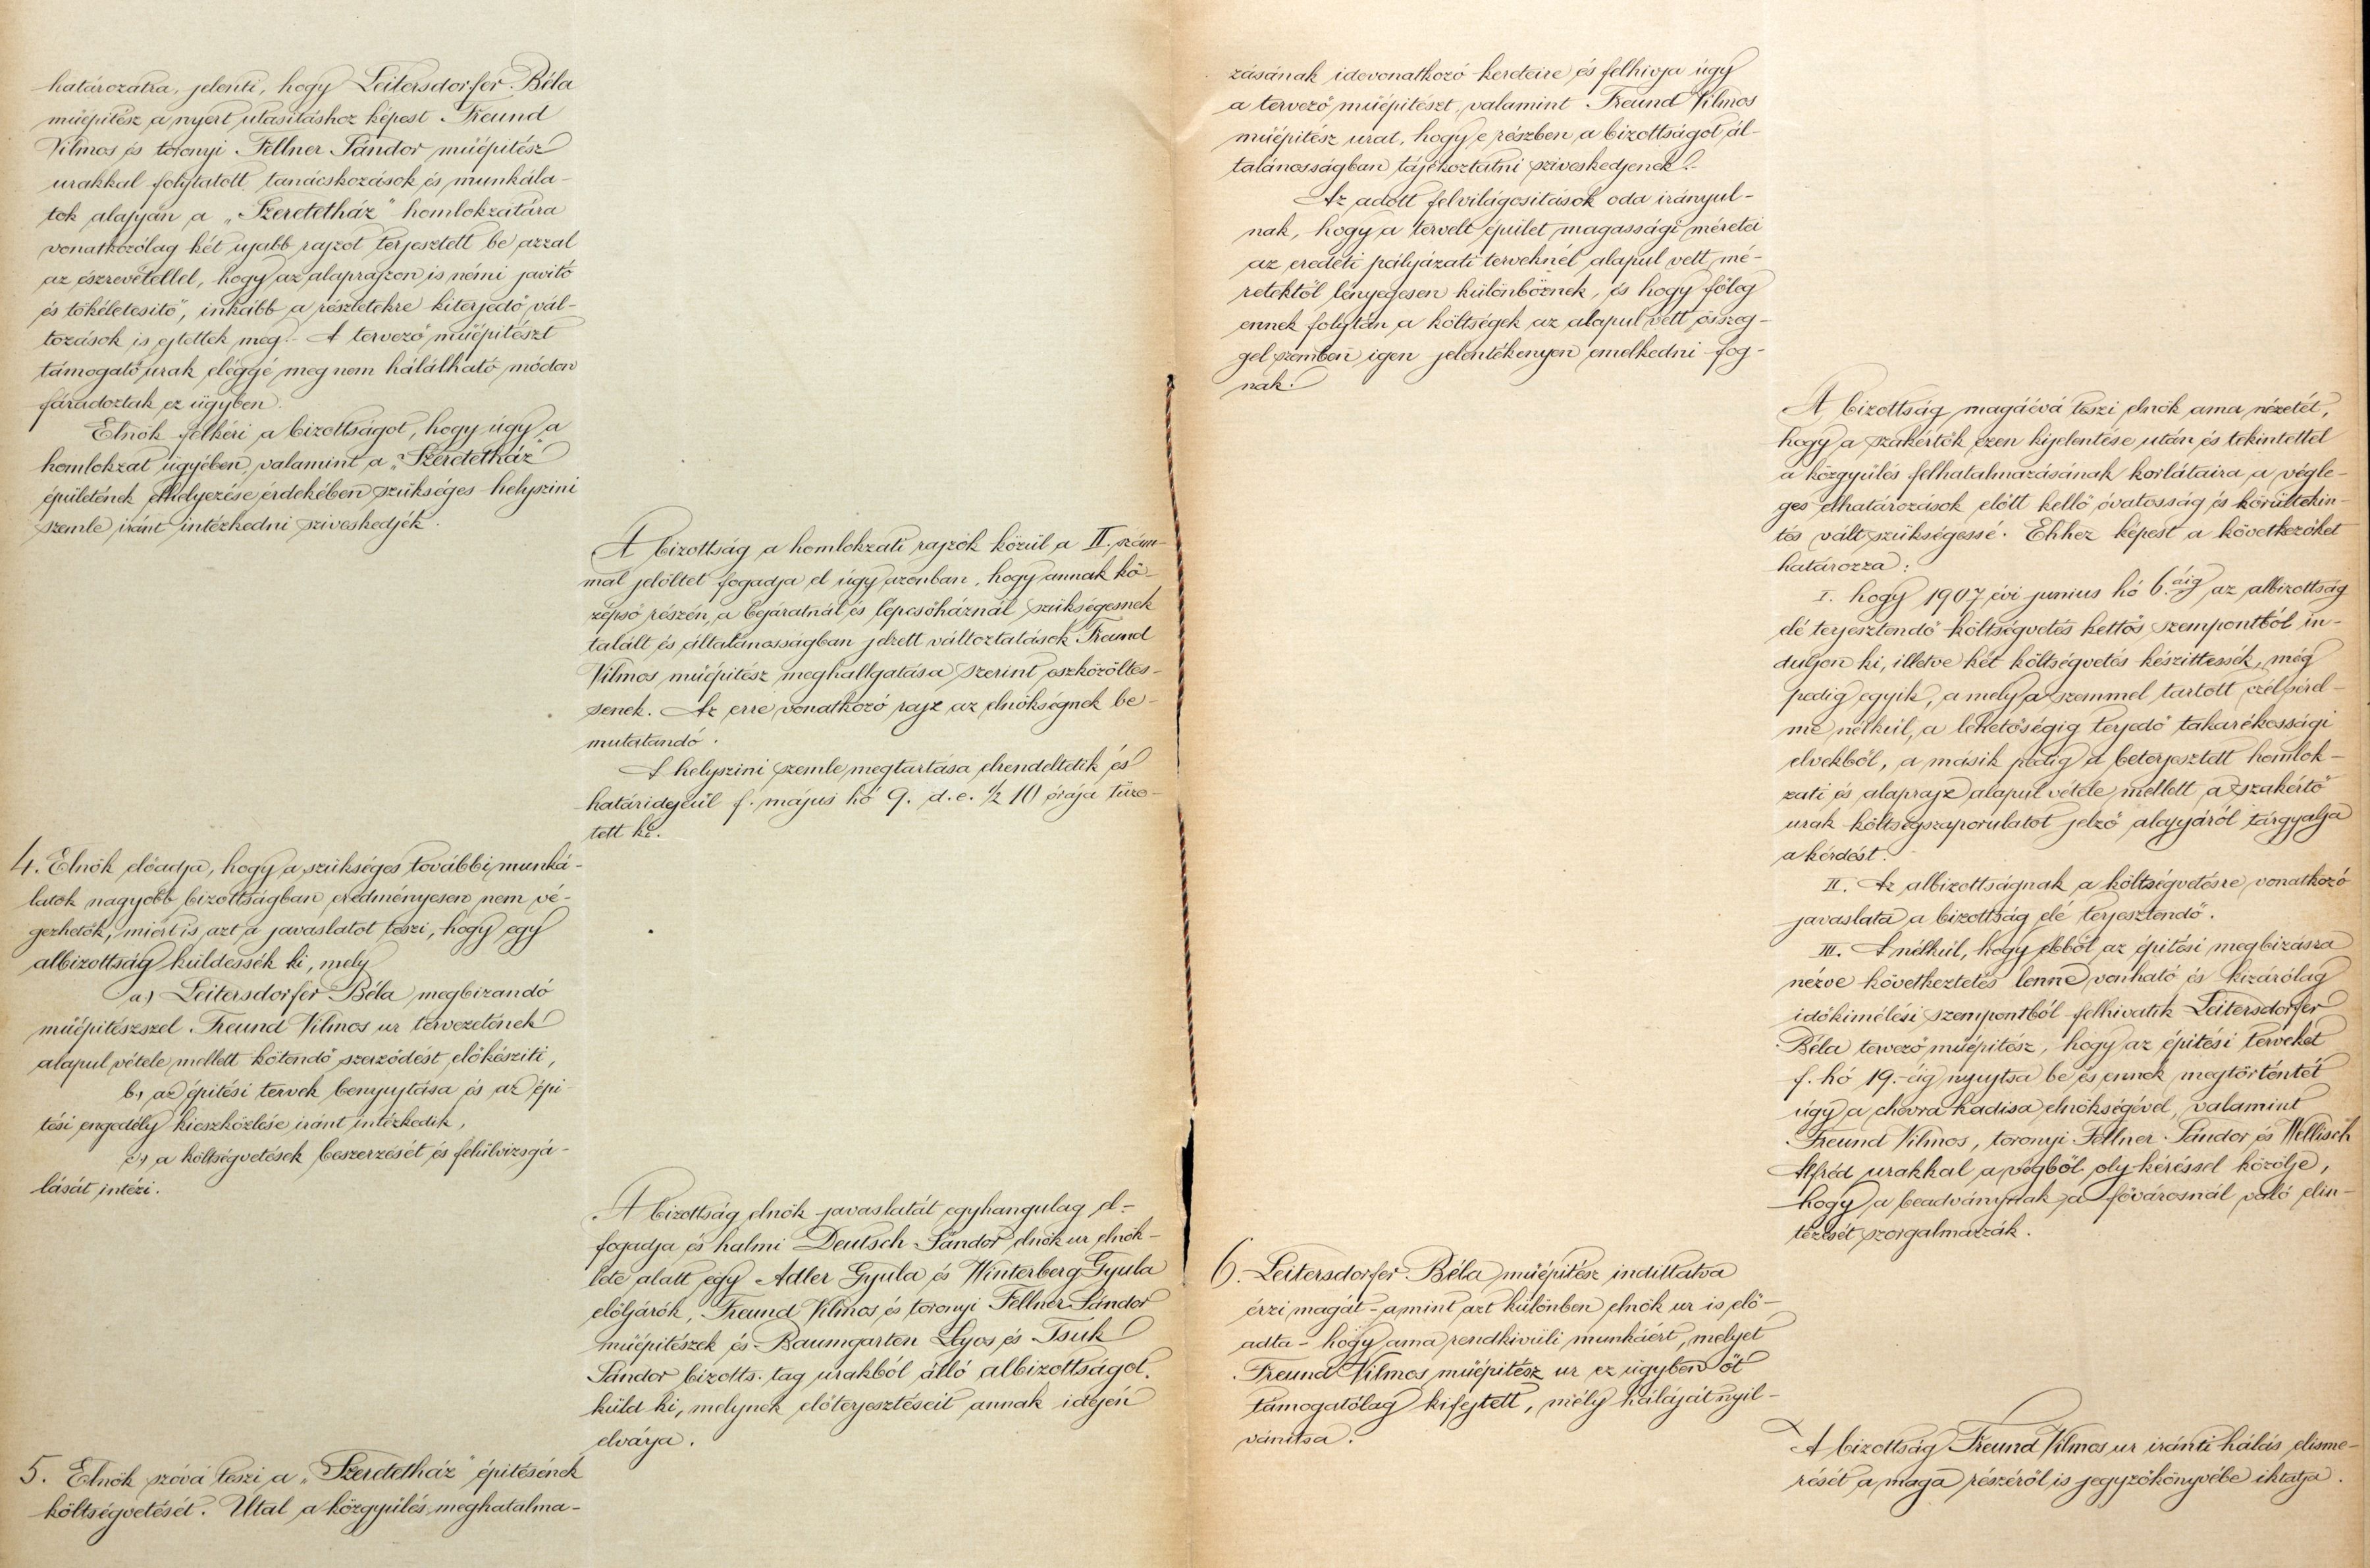 határozatra, jelenti, hogy Leitersdorfer Béla
müépitész a nyert utasitáshoz képest Freund
Vilmos és toronyi Fellner Sándor müépitész
urakkal folytatott tanácskozások és munkála-
tok alapján a „Szeretetház" homlokzatára
vonatkozólag két ujabb rajzot terjesztett be azzal
az észrevétellel, hogy az alaprajzon is némi javitó
és tökéletesitő, inkább a részletekre kiterjedő vál-
tozások is ejtettek meg. - A tervező müépitészt
támogató urak eléggé meg nem hálálható módon
fáradoztak ez ügyben.
Elnök felkéri a bizottságot, hogy úgy a
homlokzat ügyében, valamint a „Szeretetház"
épületének elhelyezése érdekében szükséges helyszini
szemle iránt intézkedni sziveskedjék.
A bizottság a homlokzati rajzok közül a II. szám-
mal jelöltet fogadja el úgy azonban, hogy annak kö-
zépső részén, a bejáratnál és lépcsőháznál szükségesnek
talált és általánosságban jelzett változtatások Freund
Vilmos müépitész meghallgatása szerint eszközöltes-
senek. Az erre vonatkozó rajz az elnökségnek be-
mutatandó.
A helyszini szemle megtartása elrendeltetik és
határidejéül f. május hó 9. d. e. ½ 10 órája tüze-
tett ki.
4. Elnök előadja, hogy a szükséges további munká-
latok nagyobb bizottságban eredményesen nem vé-
gezhetők, miért is azt a javaslatot teszi, hogy egy
albizottság küldessék ki, mely
a.) Leitersdorfer Béla megbizandó
müépitészszel Freund Vilmos ur tervezetének
alapul vétele mellett kötendő szerződést előkésziti,
b.) az épitési tervek benyujtása és az épi-
tési engedély kieszközlése iránt intézkedik,
c.) a költségvetések beszerzését és felülvizsgá-
lását intézi.
A bizottság elnök javaslatát egyhangulag el-
fogadja és halmi Deutsch Sándor elnök ur elnök-
lete alatt egy Adler Gyula és Winterberg Gyula
elöljárók, Freund Vilmos és toronyi Fellner Sándor
müépitészek és Baumgarten Lajos és Tsuk
Sándor bizotts. tag urakból álló albizottságot
küld ki, melynek előterjesztéseit annak idején
elvárja.
5. Elnök szóvá teszi a „Szeretetház" épitésének
költségvetését. Utal a közgyülés meghatalma-
zásának idevonatkozó kereteire és felhivja úgy
a tervező müépitészt, valamint Freund Vilmos
müépitész urat, hogy e részben a bizottságot ál-
talánosságban tájékoztatni sziveskedjenek.
Az adott felvilágositások oda irányul-
nak, hogy a tervelt épület magassági méretei
az eredeti pályázati terveknél alapul vett mé-
retektől lényegesen különböznek, és hogy főleg
ennek folytán a költségek az alapul vett összeg-
gel szemben igen jelentékenyen emelkedni fog-
nak.
A bizottság magáévá teszi elnök ama nézetét,
hogy a szakértők ezen kijelentése után és tekintettel
a közgyülés felhatalmazásának korlátaira a végle-
ges elhatározások előtt kellő óvatosság és körültekin-
tés vált szükségessé. Ehhez képest a következőket
határozza:
I. hogy 1907 évi junius hó 6.áig az albizottság
elé terjesztendő költségvetés kettős szempontból in-
duljon ki, illetve két költségvetés készittessék, még
pedig egyik, a mely a szemmel tartott czél sérel-
me nélkül, a lehetőségig terjedő takarékossági
elvekből, a másik pedig a beterjesztett homlok-
zati és alaprajz alapul vétele mellett a szakértő
urak költségszaporulatot jelző alapjáról tárgyalja
a kérdést.
II. Az albizottságnak a költségvetésre vonatkozó
javaslata a bizottság elé terjesztendő.
III. A nélkül, hogy ebből az épitési megbizásra
nézve következtetés lenne vonható és kizárólag
időkimélési szempontból felhivatik Leitersdorfer
Béla tervező müépitész, hogy az épitési terveket
f. hó 19.-éig nyujtsa be és ennek megtörténtét
úgy a chevra kadisa elnökségével, valamint
Freund Vilmos, toronyi Fellner Sándor és Wellisch
Alfréd urakkal a végből oly kéréssel közölje,
hogy a beadványnak a fővárosnál való elin-
tézését szorgalmazzák.
6. Leitersdorfer Béla müépitész indittatva
érzi magát - amint azt különben elnök ur is elő-
adta - hogy ama rendkivüli munkáért, melyet
Freund Vilmos müépitész ur ez ügyben őt
támogatólag kifejtett, mély háláját nyil-
vánitsa.
A bizottság Freund Vilmos ur iránti hálás elisme-
rését a maga részéről is jegyzőkönyvébe iktatja.